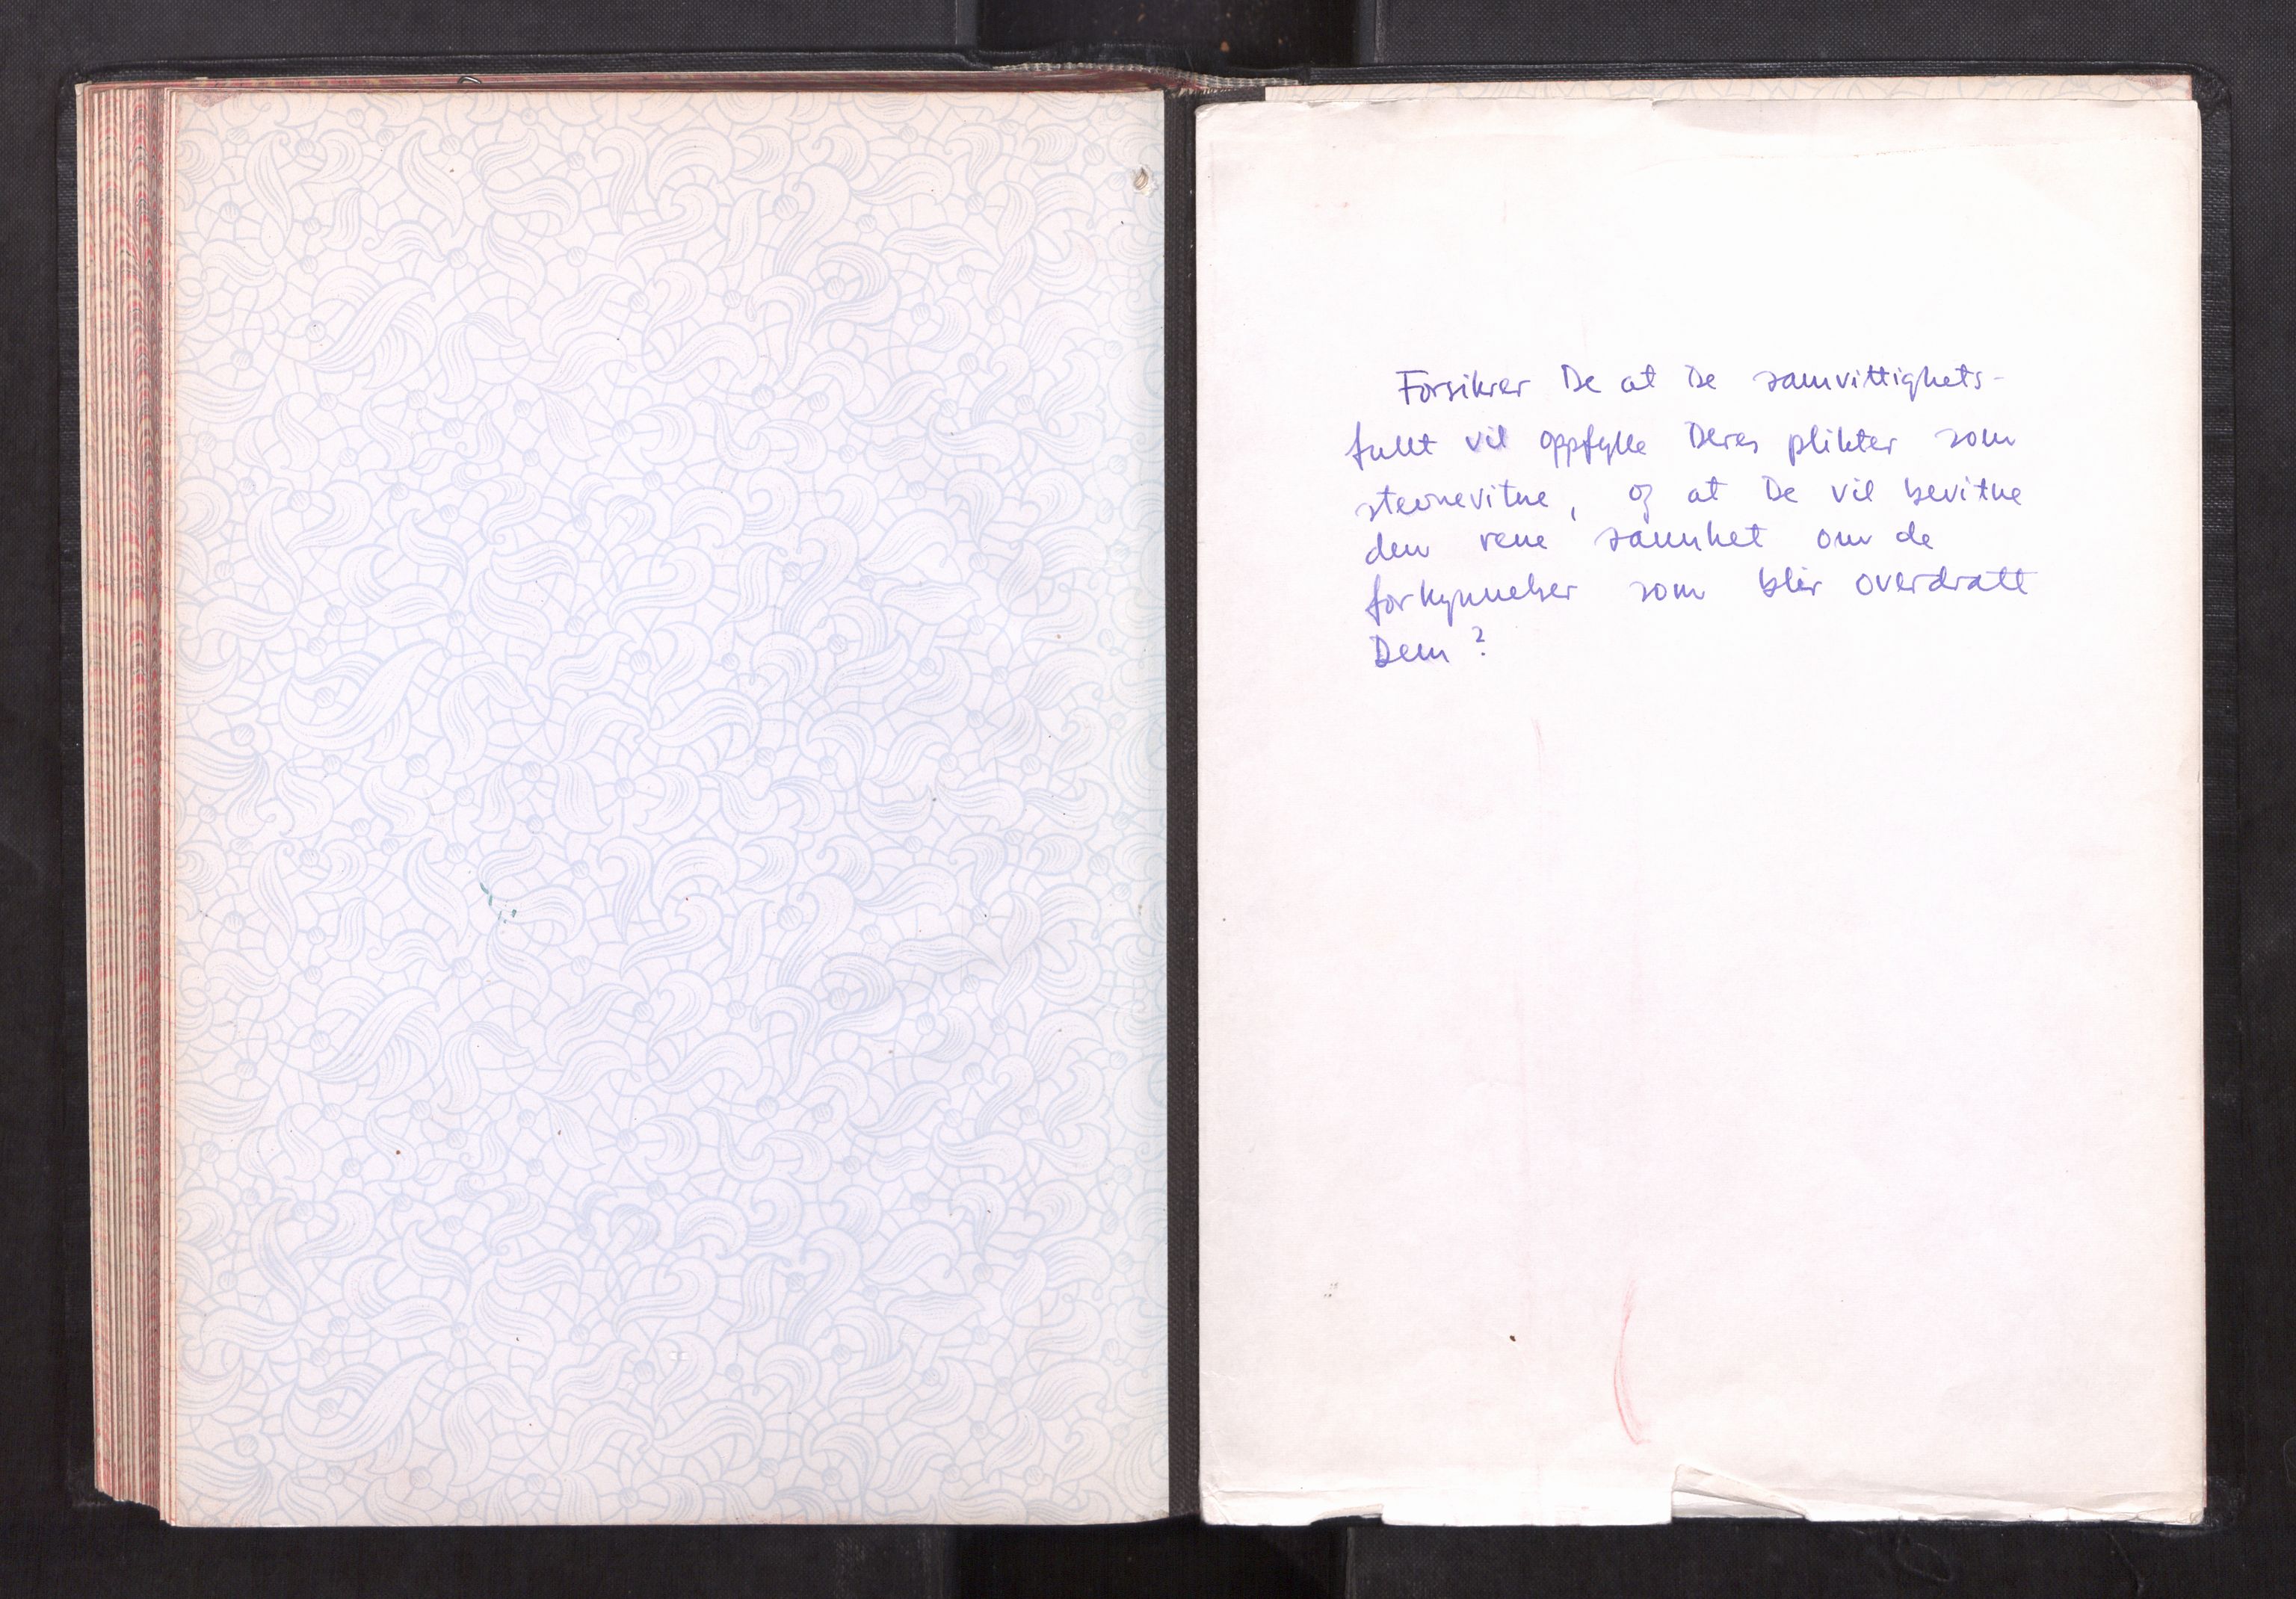 Forsikrer De at De samvittighets-
fullt vil oppfylle Deres plikter som
stevnevitne, og at De vil bevitne
den rene sannhet om de
forkynnelser som blir overdratt
Dem?